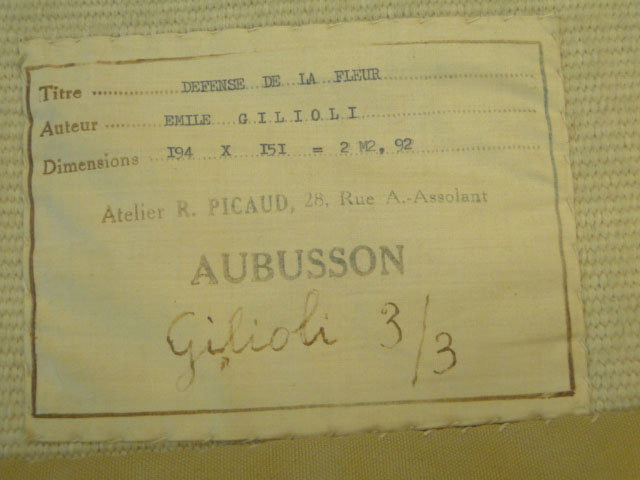 Titre ........ DEFENSE DE LA FLEUR
Auteur ........ EMILE GILIOLI
Dimensions 194 X 151 = 2 M2, 92
Atelier R. PICAUD, 28, Rue A.-Assolant
AUBUSSON
Gilioli 3/3